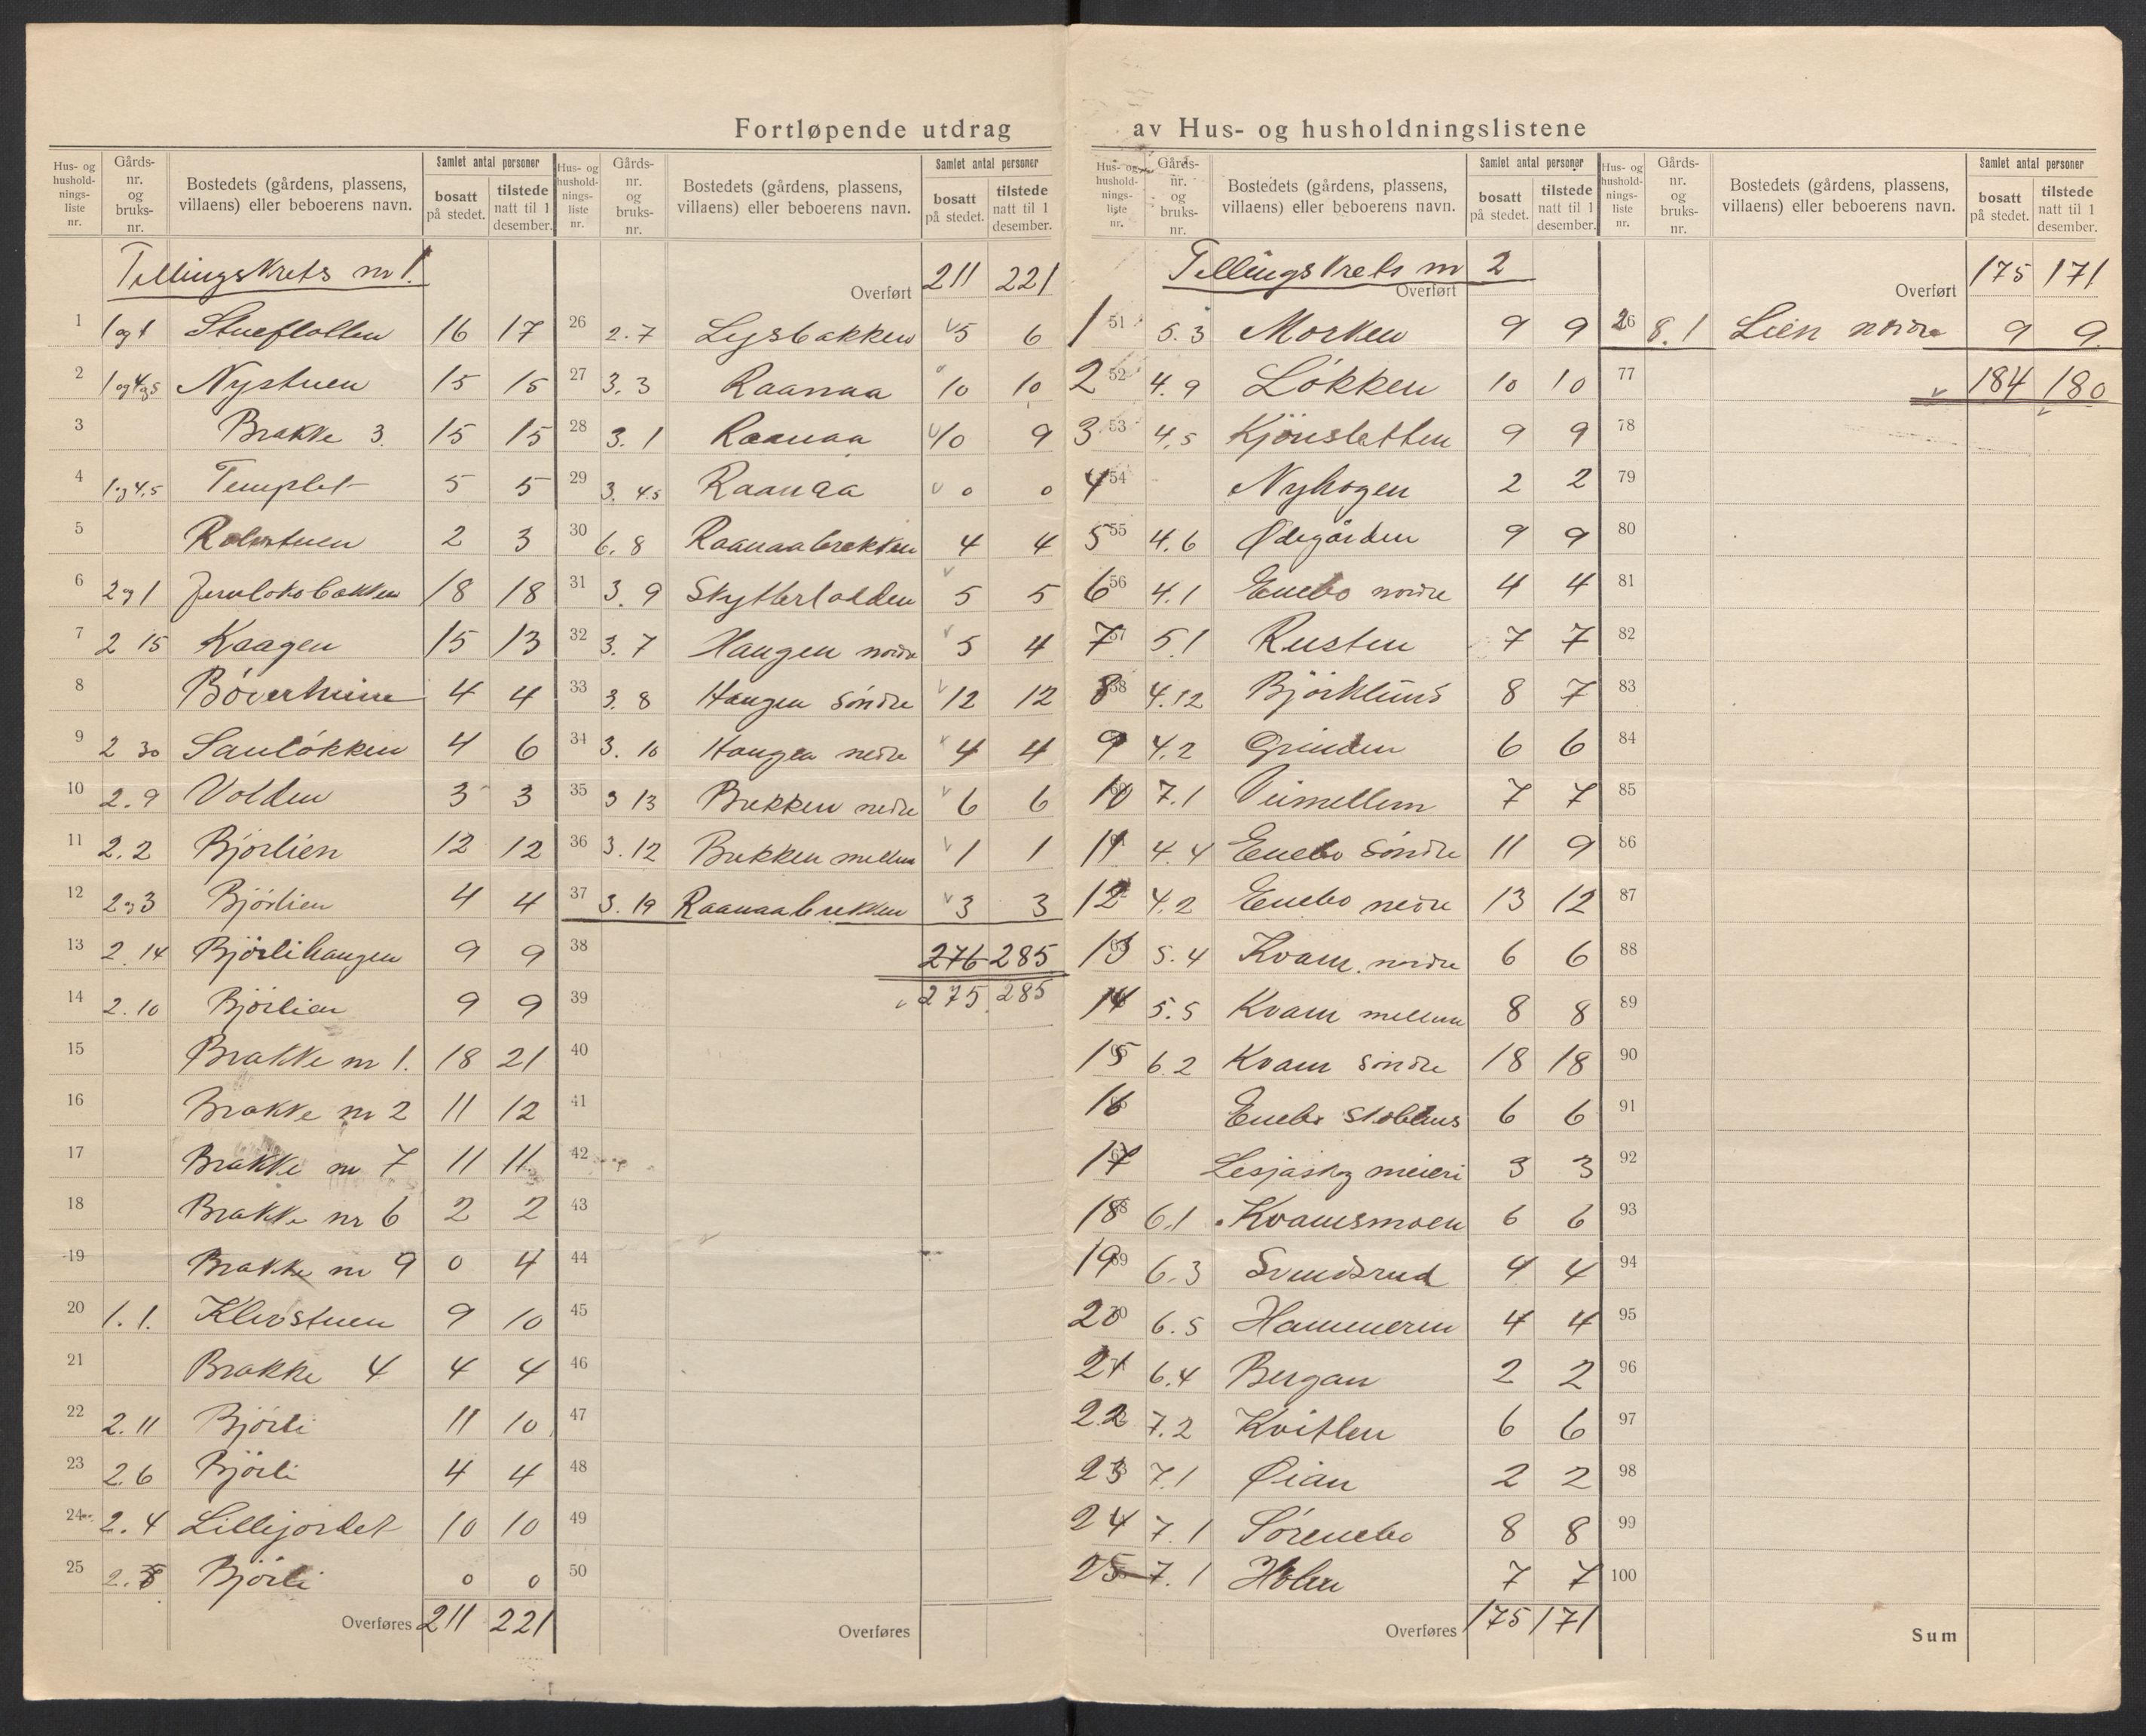 Fortløpende utdrag av Hus- og husholdningslistene
Hus- og husholdnings-liste nr. | Gårds-nr. og bruks-nr. | Bostedets (gårdens, plassens, villaens) eller beboerens navn. | Samlet antal personer | bosatt på stedet. | tilstede natt til 1 desember.
Tellingskrets nr 1.
1 1og1 Stueflotten 16 17
2 1og4og5 Nystuen 15 15
3 Brakke 3. 15 15
4 1og4,5 Templet 5 5
5 2 3
6 2og1 18 18
7 2 15 Kaagen 15 13
8 4 4
9 2 30 4 6
10 2.9 Volden 3 3
11 2.2 Bjørlien 12 12
12 2og3 Bjørlien 4 4
13 2.14 Bjørlihaugen 9 9
14 2.10 Bjørlien 9 9
15 Brakke nr 1. 18 21
16 Brakke nr 2 11 12
17 Brakke nr 7 11 11
18 Brakke nr 6 2 2
19 Brakke nr 9 0 4
20 1.1. Klevstuen 9 10
21 Brakke 4 4 4
22 2.11 Bjørli 11 10
23 2.6 Bjørli 4 4
24 2.4 Lillejordet 10 10
25 Bjørli 0 0
Overføres 211 221
Hus- og husholdnings-liste nr. | Gårds-nr. og bruks-nr. | Bostedets (gårdens, plassens, villaens) eller beboerens navn. | Samlet antal personer | bosatt på stedet. | tilstede natt til 1 desember.
Overført 211 221
26 2.7 Lysbakken 5 6
27 3.3 Raanaa 10 10
28 3.1 Raanaa 10 9
29 3. 4.5 Raanaa 0 0
30 6.8 Raanaabrekken 4 4
31 3.9 Skytterlodden 5 5
32 3.7 Haugen nordre 5 4
33 3.8 Haugen søndre 12 12
34 3.10 Haugen nedre 4 4
35 3 13 Brekken nedre 6 6
36 3.12 Brekken mellem 1 1
37 3.19 Raanaabrekken 3 3
38 276 285
39 275 285
40
41
42
43
44
45
46
47
48
49
50
Overføres
Hus- og husholdnings-liste nr. | Gårds-nr. og bruks-nr. | Bostedets (gårdens, plassens, villaens) eller beboerens navn. | Samlet antal personer | bosatt på stedet. | tilstede natt til 1 desember.
Tellingskrets nr 2
Overført
1 51 5.3 Morken 9 9
2 52 4.9 Løkken 10 10
3 53 4.5 Kjønsletten 9 9
4 54 Nyhogen 2 2
5 55 4.6 Ødegården 9 9
6 56 4.1 Enebo nordre 4 4
7 57 5.1 Rusten 7 7
8 58 4.12 8 7
9 4.2 Grinden 6 6
10 7.1 7 7
11 4.4 Enebo søndre 11 9
12 4.2 Enebo nedre 13 12
13 5.4 Kvam nordre 6 6
14 5.5 Kvam mellem 8 8
15 6.2 Kvam søndre 18 18
16 Enebo skolehus 6 6
17 Lesjaskog meieri 3 3
18 6.1 Kvamsmoen 6 6
19 69 6.3 Svendsrud 4 4
20 6.5 Hammeren 4 4
21 6.4 Bergan 2 2
22 7.2 Kvitlen 6 6
23 7.1 Øian 2 2
24 7.1 Sørenebo 8 8
25 7.1 Holen 7 7
Overføres 175 171
Hus- og husholdnings-liste nr. | Gårds-nr. og bruks-nr. | Bostedets (gårdens, plassens, villaens) eller beboerens navn. | Samlet antal personer | bosatt på stedet. | tilstede natt til 1 desember.
Overført 175 171
26 8.1 Lien nordre 9 9
77 184 180
78
79
80
81
82
83
84
85
86
87
88
89
90
91
92
93
94
95
96
97
98
99
100
Sum